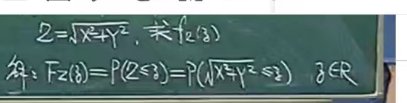 Z=√X²+Y², 求f_Z(z)
解: F_Z(z)=P(Z≤z)=P(√X²+Y²≤z) z∈R